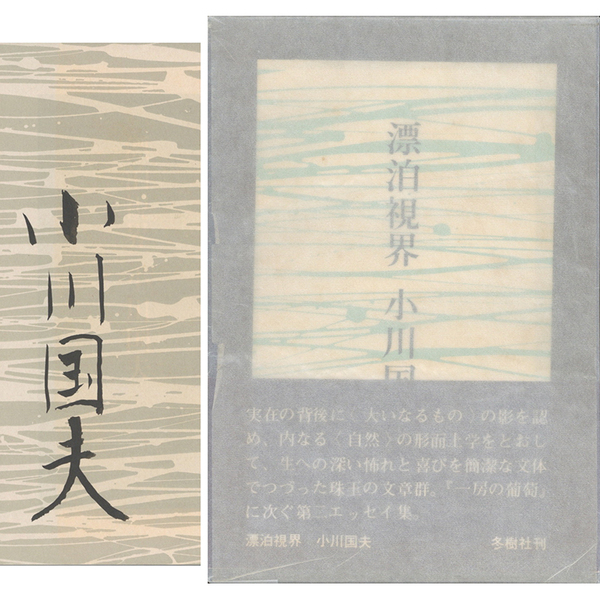 小川国夫
漂泊視界 小川国
実在の背後に〈大いなるもの〉の影を認
め、内なる〈自然〉の形而上学をとおし
て、生への深い怖れと喜びを簡潔な文体
でつづった珠玉の文章群。『一房の葡萄』
に次ぐ第二エッセイ集。
漂泊視界 小川国夫 冬樹社刊